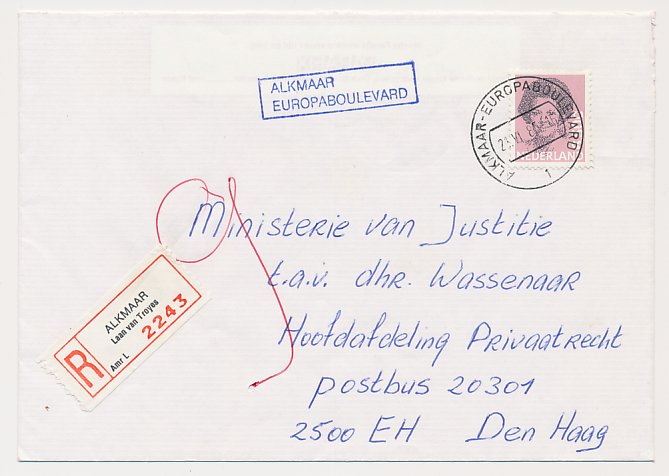 ALKMAAR
EUROPABOULEVARD
ALKMAAR-EUROPABOULEVARD
1
NEDERLAND
Ministerie van Justitie
t.a.v. dhr. Wassenaar
Hoofdafdeling Privaatrecht
postbus 20301
2500 EH Den Haag
R
ALKMAAR
Laan van Troyes
Amr L
2243